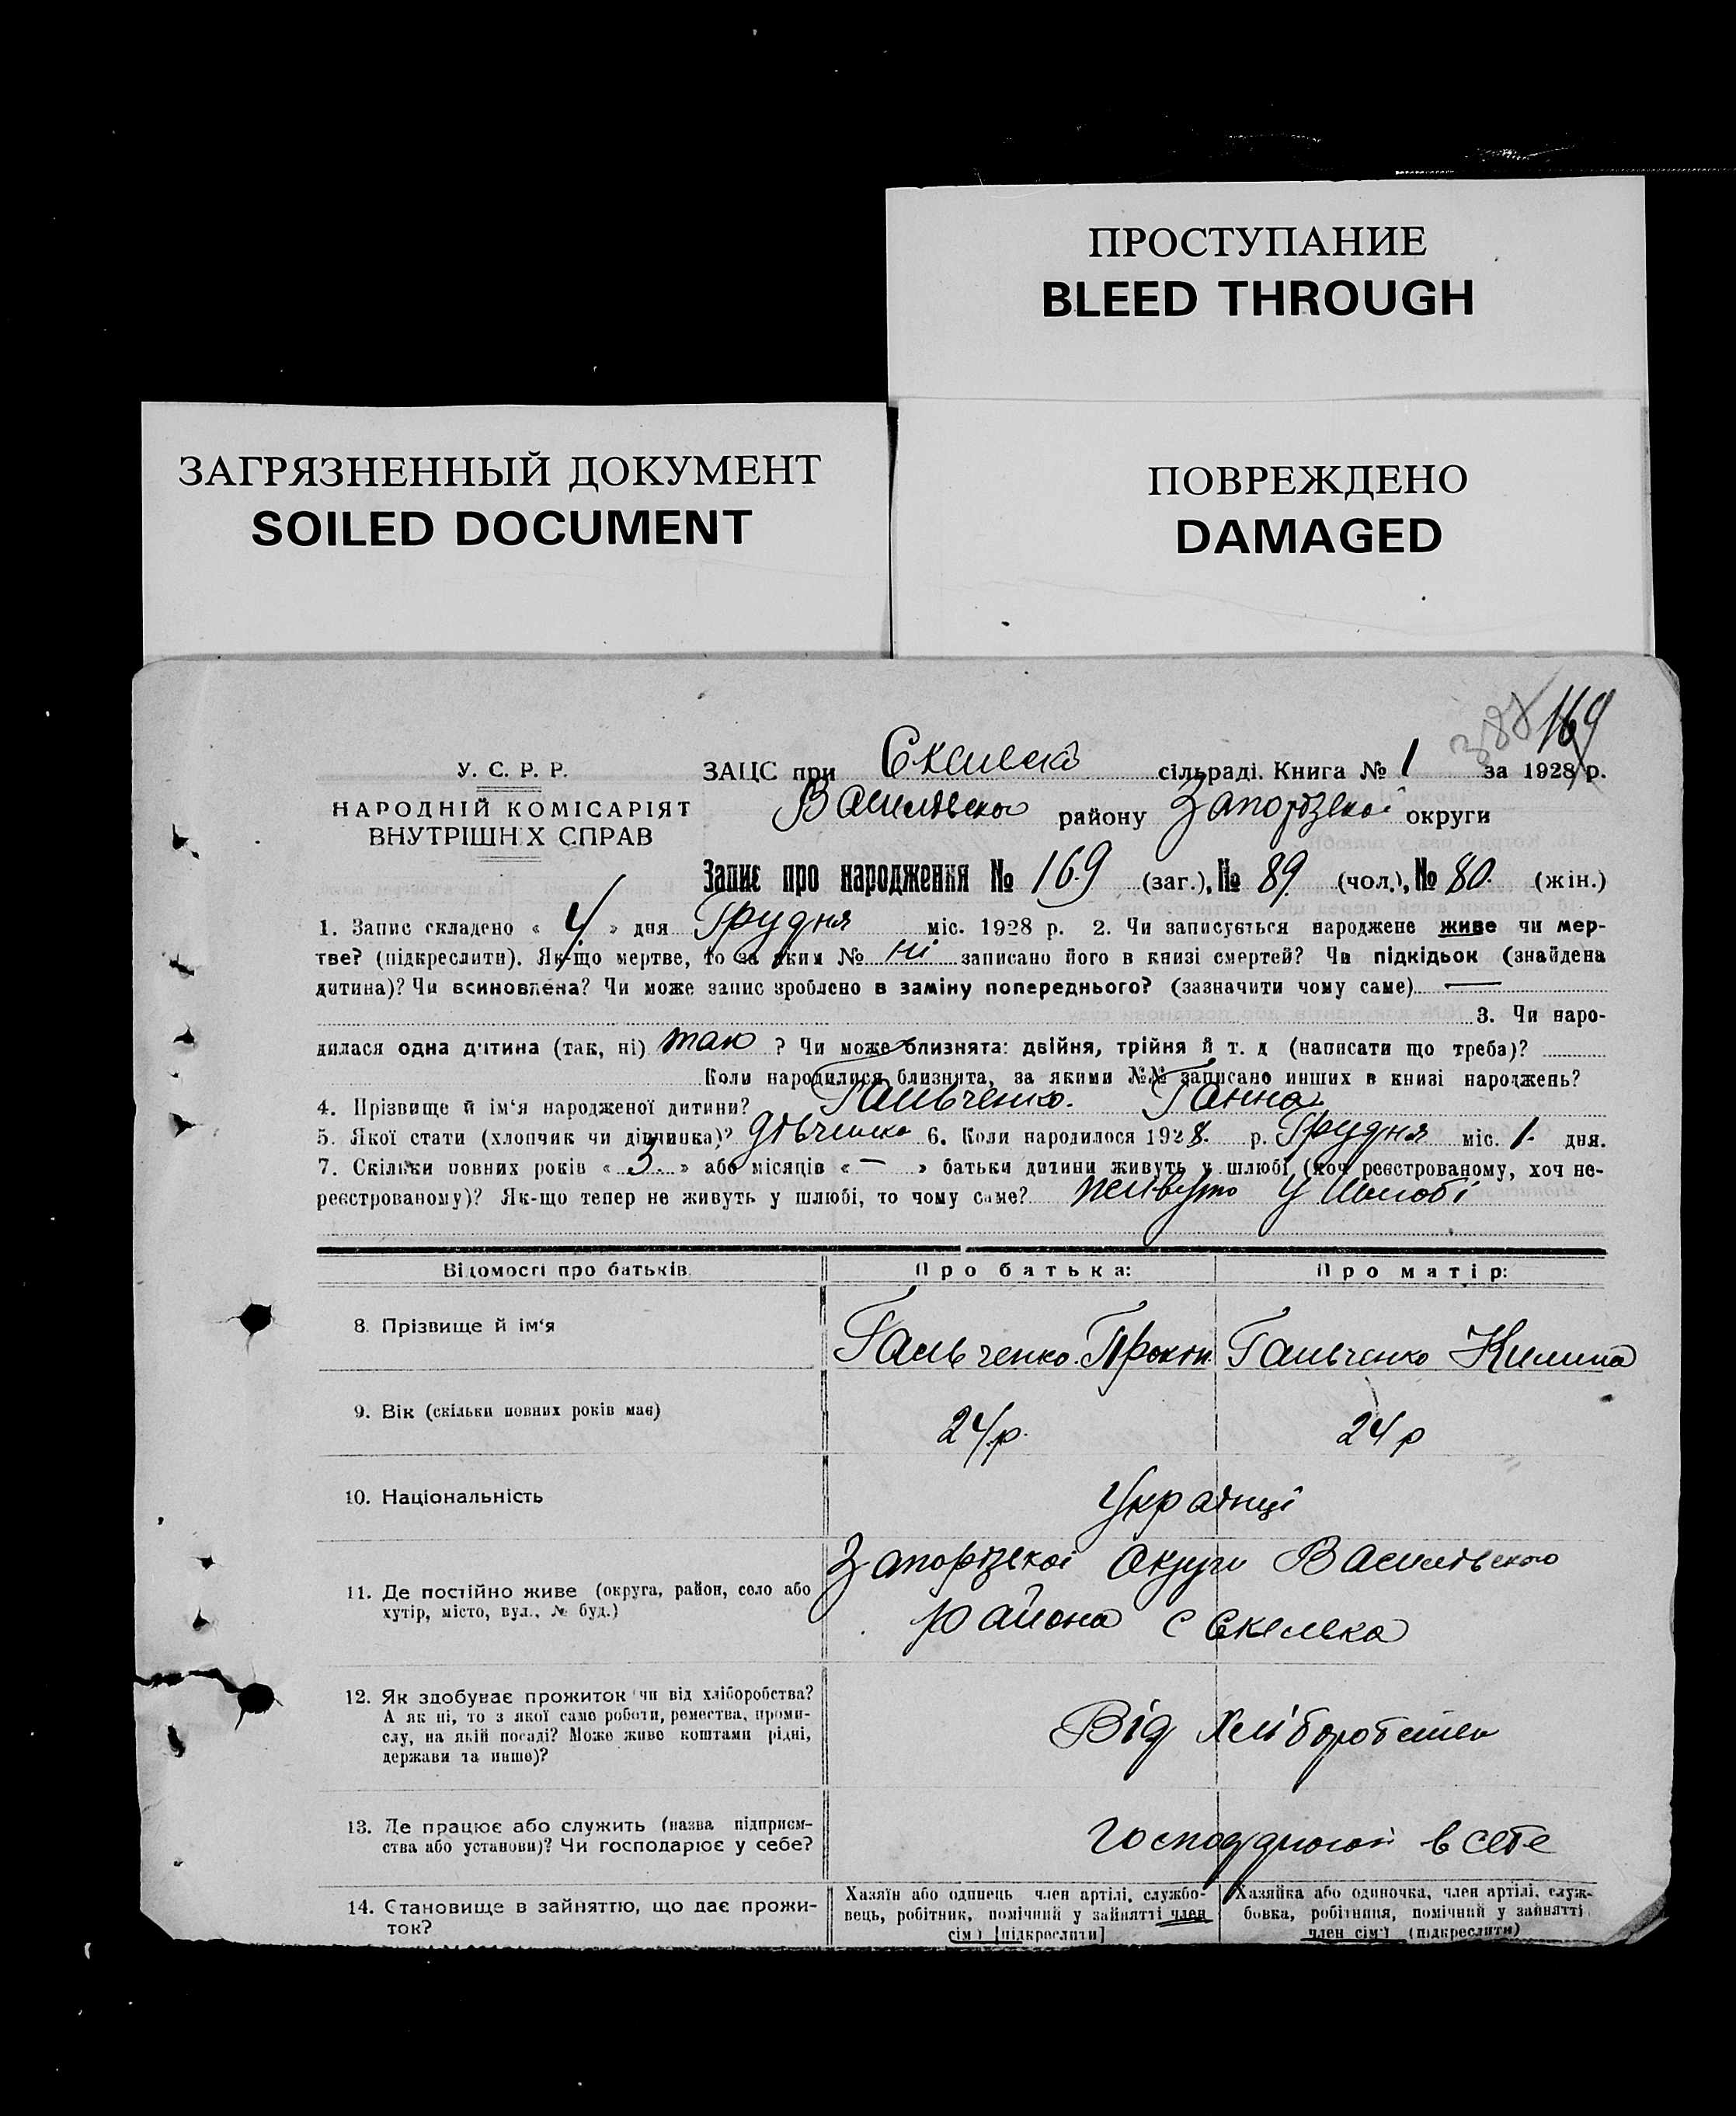 ПРОСТУПАНИЕ
BLEED THROUGH
ЗАГРЯЗНЕННЫЙ ДОКУМЕНТ
SOILED DOCUMENT
ПОВРЕЖДЕНО
DAMAGED
388 169
У. С. Р. Р.
НАРОДНІЙ КОМІСАРІЯТ
ВНУТРІШНІХ СПРАВ
ЗАЦС при сільраді. Книга № 1 за 1928 р.
району Запорізької округи
Запис про народження № 169 (заг.), № 89. (чол.), № 80. (жін.)
1. Запис складено « 4 » дня Грудня міс. 1928 р. 2. Чи записується народжене живе чи мер-
тве? (підкреслити). Як-що мертве, то за яким № ні записано його в книзі смертей? Чи підкідьок (знайдена
дитина)? Чи всиновлена? Чи може запис зроблено в заміну попереднього? (зазначити чому саме) —
3. Чи наро-
дилася одна дитина (так, ні) так ? Чи може близнята: двійня, трійня й т. д (написати що треба)?
Коли народилися близнята, за якими №№ записано инших в книзі народжень?
4. Прізвище й ім'я народженої дитини? Гальченко. Ганна
5. Якої стати (хлопчик чи дівчинка)? дівчинка 6. Коли народилося 1928. р. Грудня міс. 1. дня.
7. Скільки повних років « 3. » або місяців « – » батьки дитини живуть у шлюбі (хоч реєстрованому, хоч не-
реєстрованому)? Як-що тепер не живуть у шлюбі, то чому саме? живуть у шлюбі
Відомості про батьків. Про батька: Про матір:
8. Прізвище й ім'я Гальченко. Прокоп Гальченко Килина
9. Вік (скільки повних років має) 24 р. 24 р
10. Національність Українці
11. Де постійно живе (округа, район, село або
хутір, місто, вул., № буд.)
Запорізької Округи Василівського
района с Скелька
12. Як здобуває прожиток чи від хліборобства?
А як ні, то з якої саме роботи, ремества, проми-
слу, на якій посаді? Може живе коштами рідні,
держави та инше)?
Від Хліборобства
13. Де працює або служить (назва підприєм-
ства або установи)? Чи господарює у себе?
в себе
14. Становище в зайняттю, що дає прожи-
ток?
Хазяїн або одинець член артілі, службо-
вець, робітник, помічний у зайнятті член
сім'ї [підкреслити]
Хазяйка або одиночка, член артілі, служ-
бовка, робітниця, помічний у зайнятті
член сім'ї (підкреслити)